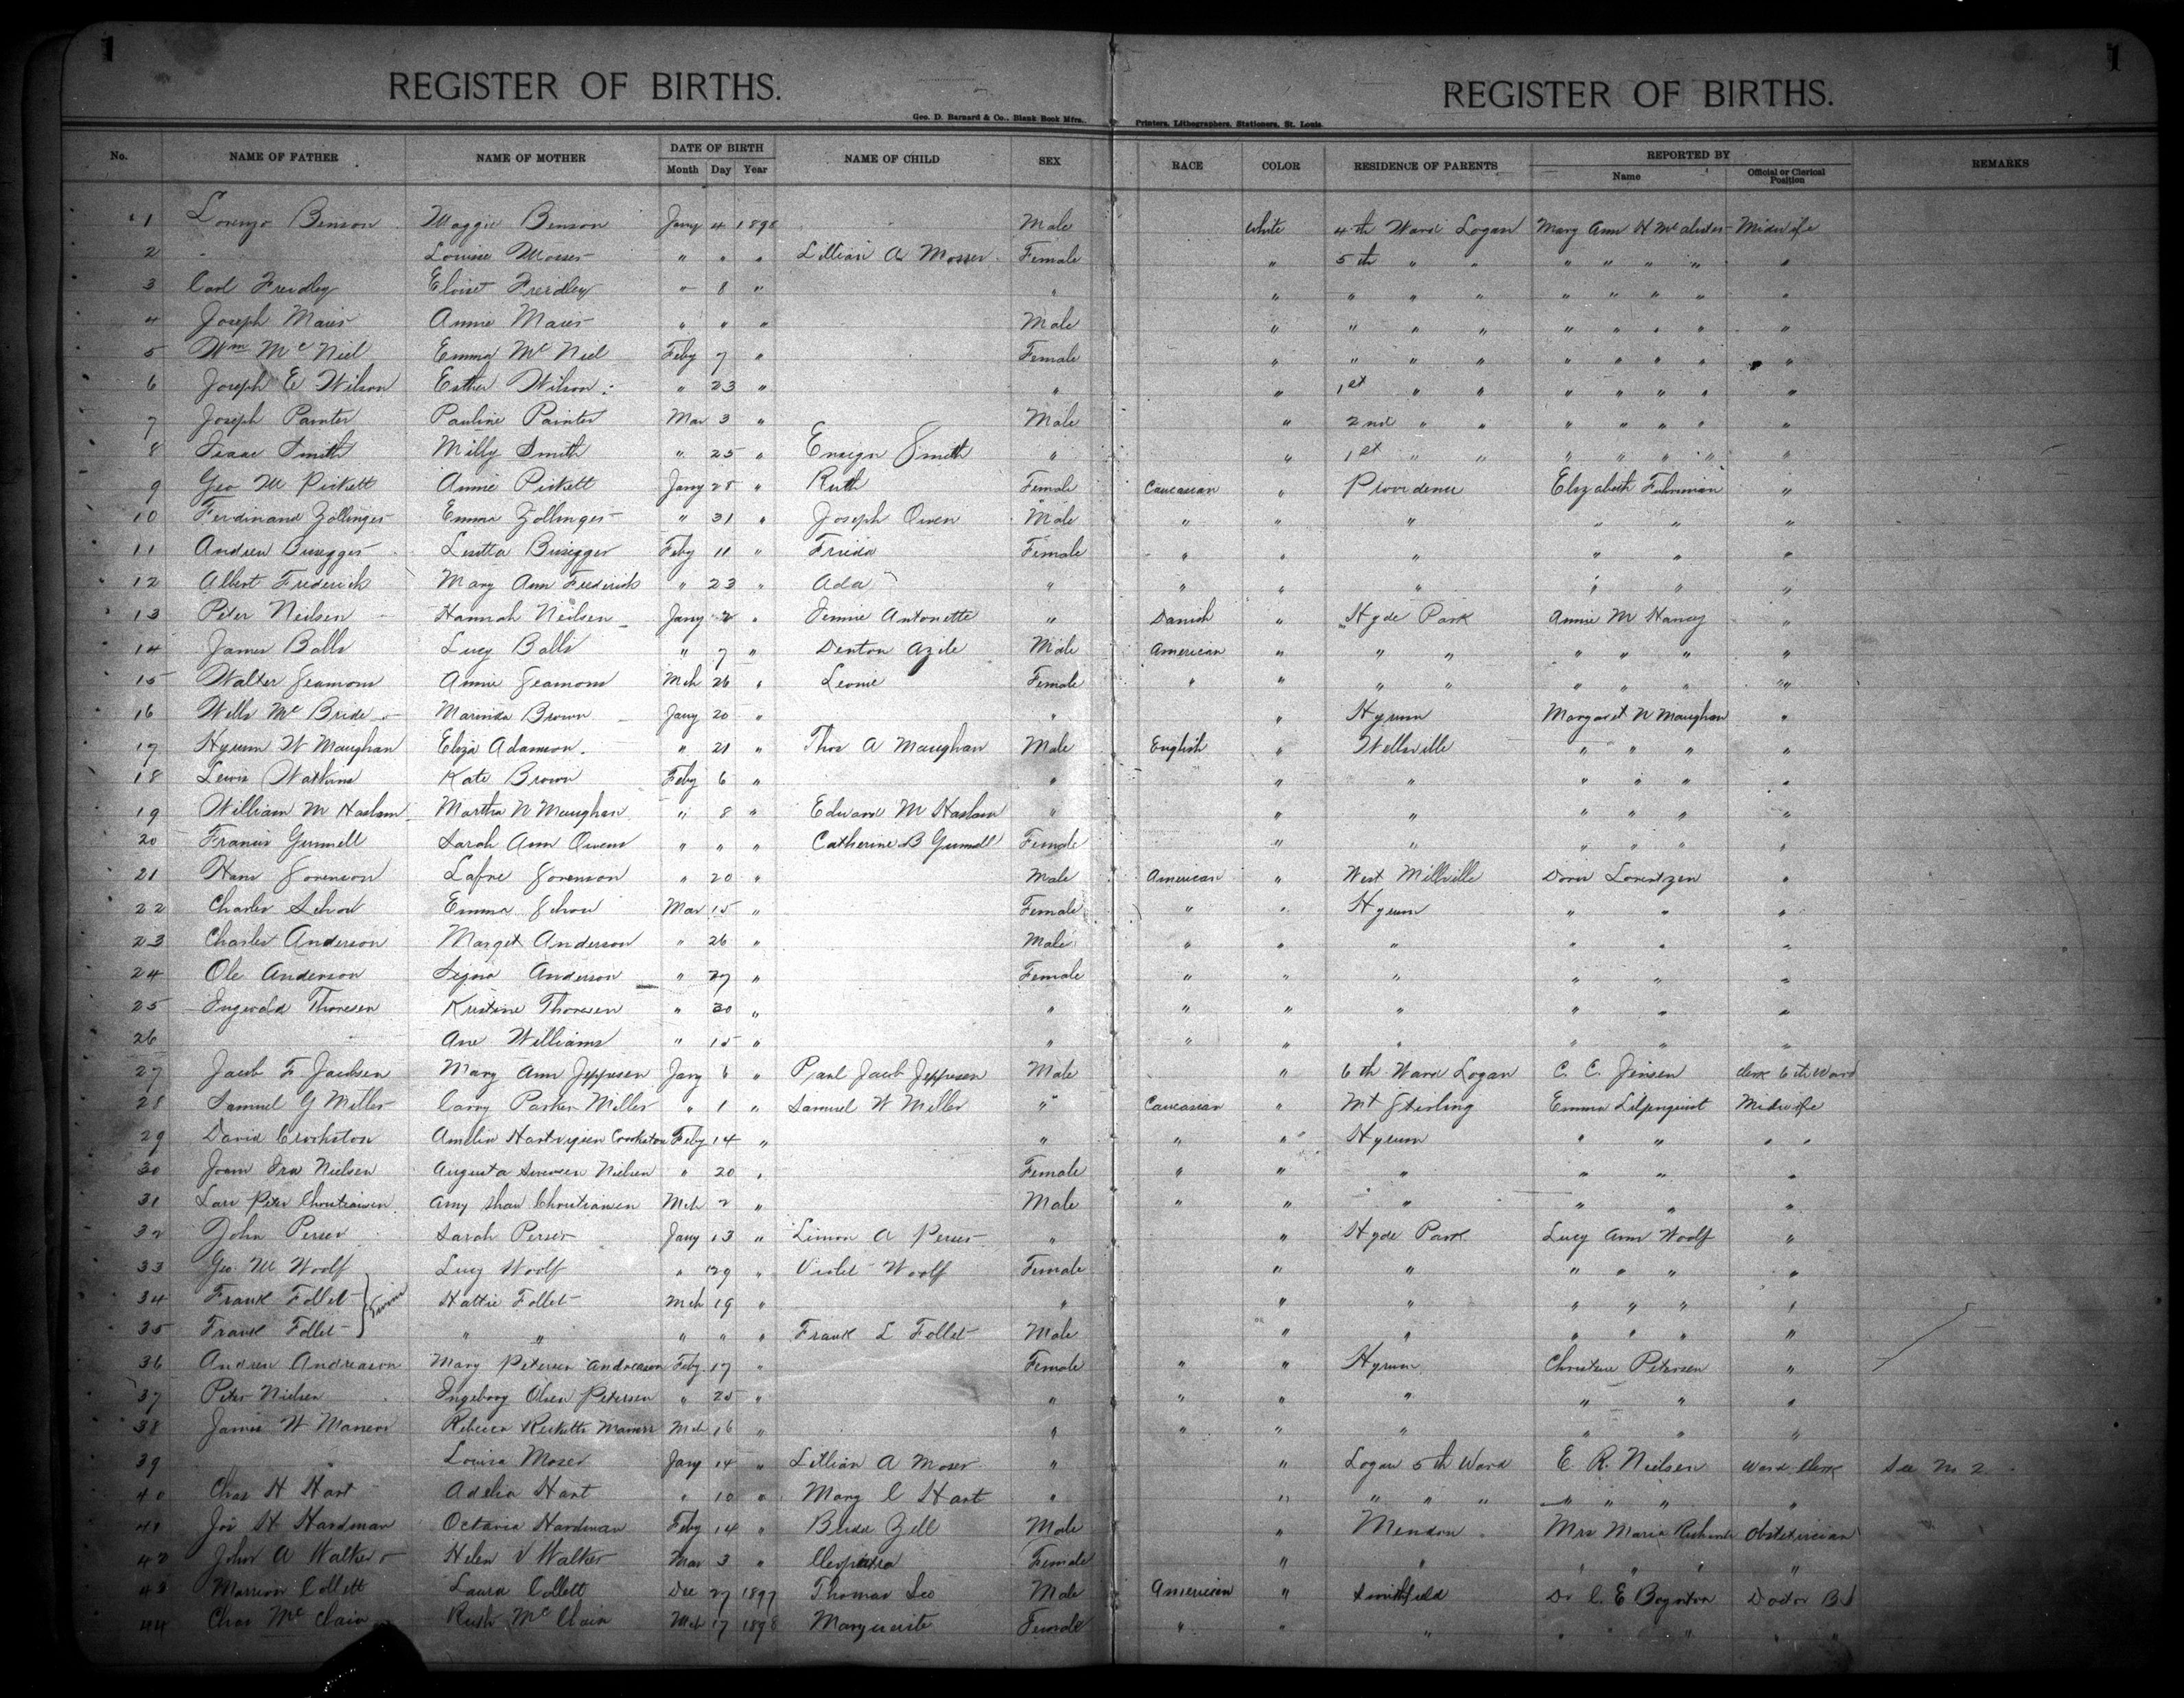 1
1
REGISTER OF BIRTHS.
REGISTER OF BIRTHS.
Geo. D. Barnard & Co., Blank Book Mfrs.
Printers, Lithographers, Stationers, St. Louis
No. NAME OF FATHER NAME OF MOTHER DATE OF BIRTH NAME OF CHILD SEX RACE COLOR RESIDENCE OF PARENTS REPORTED BY REMARKS
Month Day Year Name Official or Clerical Position
1 Lorenzo Benson Maggie Benson Jany 4 1898 Male White 4th Ward Logan Mary Ann H McAlister Midwife
2 Louise Mosser " " " Lillian A Mosser Female " 5th " " " " " " "
3 Carl Freidley Eloiset Freidley " 8 " " " " " " " " " " "
4 Joseph Maier Annie Maier " " " Male " " " " " " " " "
5 Wm McNiel Emma McNiel Feby 7 " Female " " " " " " " " "
6 Joseph E Wilson Esther Wilson " 23 " " " 1st " " " " " " "
7 Joseph Painter Pauline Painter Mar 3 " Male " 2nd " " " " " " "
8 Isaac Smith Milly Smith " 25 " Ensign Smith " " 1st " " " " " " "
9 Geo M Pickett Annie Pickett Jany 28 " Ruth Female Caucasian " Providence Elizabeth Fuhriman "
10 Ferdinand Zollinger Emma Zollinger " 31 " Joseph Owen Male " " " " " "
11 Andrew Busegger Lisetta Busegger Feby 11 " Frieda Female " " " " " "
12 Albert Frederick Mary Ann Frederick " 23 " Ada " " " " " " "
13 Peter Neilsen Hannah Neilsen Jany 2 " Jennie Antonette " Danish " Hyde Park Annie M Hancey "
14 James Balls Lucy Balls " 7 " Denton Azile Male American " " " " " " "
15 Walter Seamons Annie Seamons Mch 26 " Leonie Female " " " " " " " "
16 Wells McBride Marinda Brown Jany 20 " " " Hyrum Margaret N Maughan "
17 Hyrum W Maughan Eliza Adamson " 21 " Thos A Maughan Male English " Wellsville " " " "
18 Lewis Watkins Kate Brown Feby 6 " " " " " " " "
19 William M Haslam Martha N Maughan " 8 " Edward M Haslam " " " " " " "
20 Francis Gunnell Sarah Ann Owens " " " Catherine B Gunnell Female " " " " " "
21 Hans Sorenson Lafne Sorenson " 20 " Male American " West Millville Doris Lorentzen "
22 Charles Schow Emma Schow Mar 15 " Female " " Hyrum " " "
23 Charles Anderson Marget Anderson " 26 " Male " " " " " "
24 Ole Anderson Signa Anderson " 27 " Female " " " " " "
25 Ingevold Thoresen Kristine Thoresen " 30 " " " " " " " "
26 Ane Williams " 15 " " " " " " "
27 Jacob F. Jacobsen Mary Ann Jeppesen Jany 6 " Pearl Jacob Jeppesen Male " 6th Ward Logan C. C. Jensen Clerk 6th Ward
28 Samuel G Miller Carry Parker Miller " 1 " Samuel W Miller " Caucasian " Mt Sterling Emma Liljenquist Midwife
29 David Crookston Amelia Hartvigsen Crookston Feby 14 " " " " Hyrum " " " "
30 Ira Nielsen Augusta Sorensen Nielsen " 20 " Female " " " " " "
31 Lars Peter Christiansen Amy Shaw Christiansen Mch 2 " Male " " " " " "
32 John Perser Sarah Perser Jany 13 " Limon A Perser " " Hyde Park Lucy Ann Woolf "
33 Geo M Woolf Lucy Woolf " 29 " Violet Woolf Female " " " " " "
34 Frank Follet Twins Hattie Follet Mch 19 " " " " " " " "
35 Frank Follet " " " " " Frank L Follet Male " " " " " "
36 Andrew Andreason Mary Petersen Andreason Feby 17 " Female " " Hyrum Christine Petersen "
37 Peter Nielsen Ingeborg Olsen Petersen " 25 " " " " " " " "
38 James W Maners Rebecca Ricketts Maners Mch 16 " " " " " " " "
39 Louisa Moser Jany 14 " Lillian A Moser " " Logan 5th Ward E. R. Nielsen Ward Clerk See No 2.
40 Chas H Hart Adelia Hart " 10 " Mary C Hart " " " " " " " " "
41 Jos H Hardman Octavia Hardman Feby 14 " Zell Male " Mendon Mrs Maria Obstetrician
42 John A Walker Helen V Walker Mar 3 " Cleopatra Female " " " " " "
43 Marrion Collett Laura Collett Dec 27 1897 Thomas Leo Male American " Smithfield Dr C. E Boynton Doctor
44 Chas McClain Ruth McClain Mch 17 1898 Marguerite Female " " " " " " "